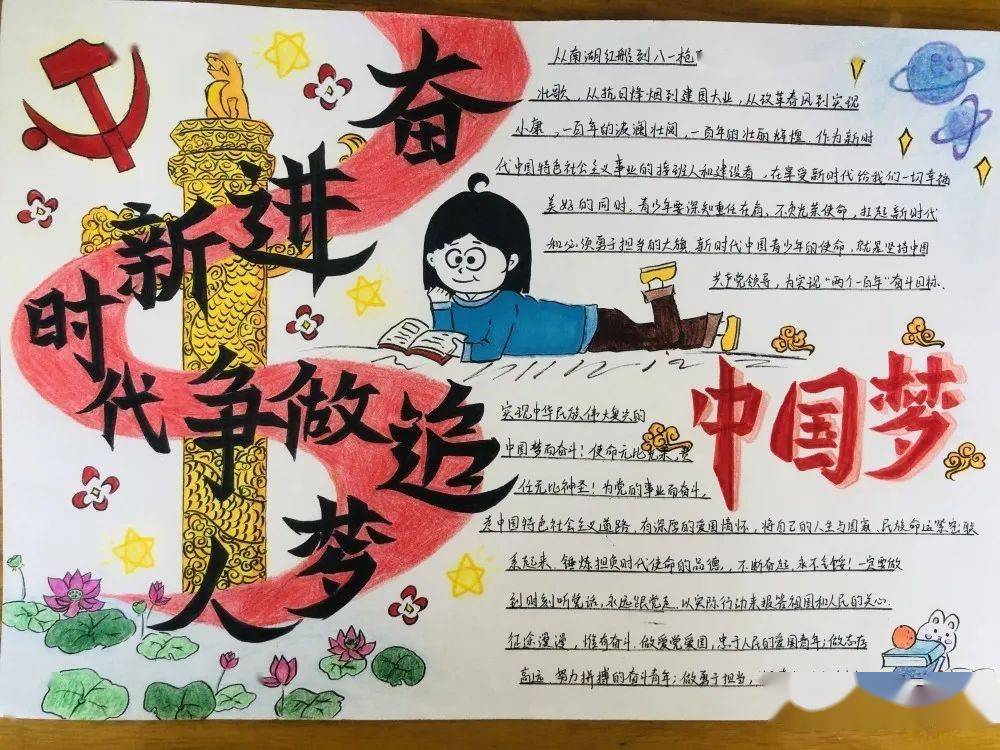 奋进新时代
争做追梦人
从南湖红船到八一枪
壮歌，从抗日烽烟到建国大业，从改革春风到实现
小康，一百年的波澜壮阔，一百年的壮丽辉煌。作为新时
代中国特色社会主义事业的接班人和建设者，在享受新时代给我们一切幸福
美好的同时，青少年要深知重任在肩、不负光荣使命，扛起新时代
和必须勇于担当的大旗。新时代中国青少年的使命，就是坚持中国
共产党领导，为实现“两个一百年”奋斗目标、
中国梦
实现中华民族伟大复兴的
中国梦而奋斗！使命无比光荣，责
任无比神圣！为党的事业而奋斗，
走中国特色社会主义道路，有深厚的爱国情怀，将自己的人生与国家、民族命运紧密联
系起来、锤炼担负时代使命的品德，不断奋起，永不言馁！一定要做
到时刻听党话，永远跟党走，以实际行动来报答祖国和人民的关心。
征途漫漫，惟有奋斗。做爱党爱国，忠于人民的爱国青年；做志存
高远、努力拼搏的奋斗青年；做勇于担当，